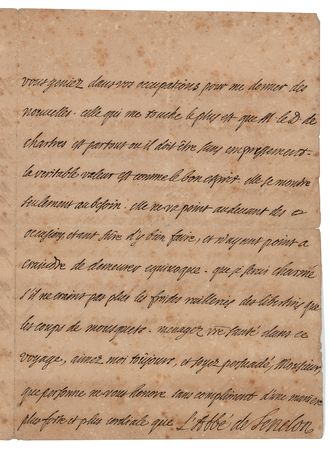 vous geniez dans vos occupations pour me donner des
nouvelles. celle qui me touche le plus est que M. le D. de
chartres est partout ou il doit être sans empressement.
la veritable valeur est comme le bon esprit. elle se montre
seulement au besoin. elle ne va point au devant des
occasions etant sûre d'y bien faire, et n'ayant point a
craindre de demeurer equivoque. que je serai charmé
s'il ne craint pas plus les froides railleries des libertins que
les coups de mousquets. menagez vre santé dans ce
voyage, aimez moi toujours, et soyez persuadé, Monsieur,
que personne ne vous honore sans compliment d'une maniere
plus forte et plus cordiale que L'Abbé de Fenelon